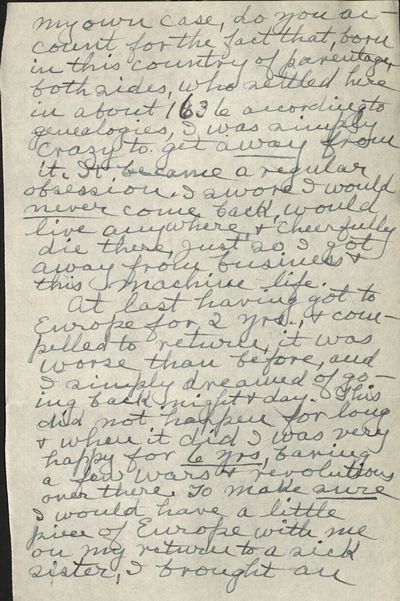 my own case, do you ac-
count for the fact that, born
in this country of parentage,
both sides, who settled here
in about 1636 according to
genealogies, I was simply
crazy to get away from
it. It became a regular
obsession. I swore I would
never come back, would
live anywhere, & cheerfully
die there, just so I got
away from business &
this machine life.
At last having got to
Europe for 2 yrs., & com-
pelled to return, it was
worse than before, and
I simply dreamed of go-
ing back night & day. This
did not happen for long
& when it did I was very
happy for 6 yrs, barring
a few wars & revolutions
over there. To make sure
I would have a little
piece of Europe with me
on my return to a sick
sister, I brought an